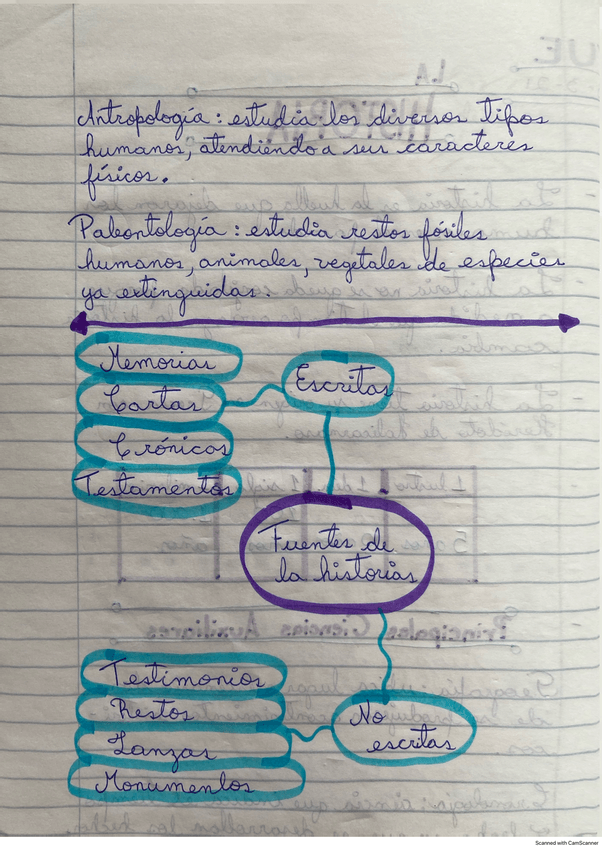 Antropología : estudia los diversos tipos
humanos, atendiendo a sus caracteres
físicos.
Paleontología : estudia restos fósiles
humanos, animales, vegetales de especies
ya extinguidas.
Memorias
Cartas
Crónicas
Testamentos
Escritas
Fuentes de
la historias
Testimonios
Restos
Lanzas
Monumentos
No
escritas
Scanned with CamScanner